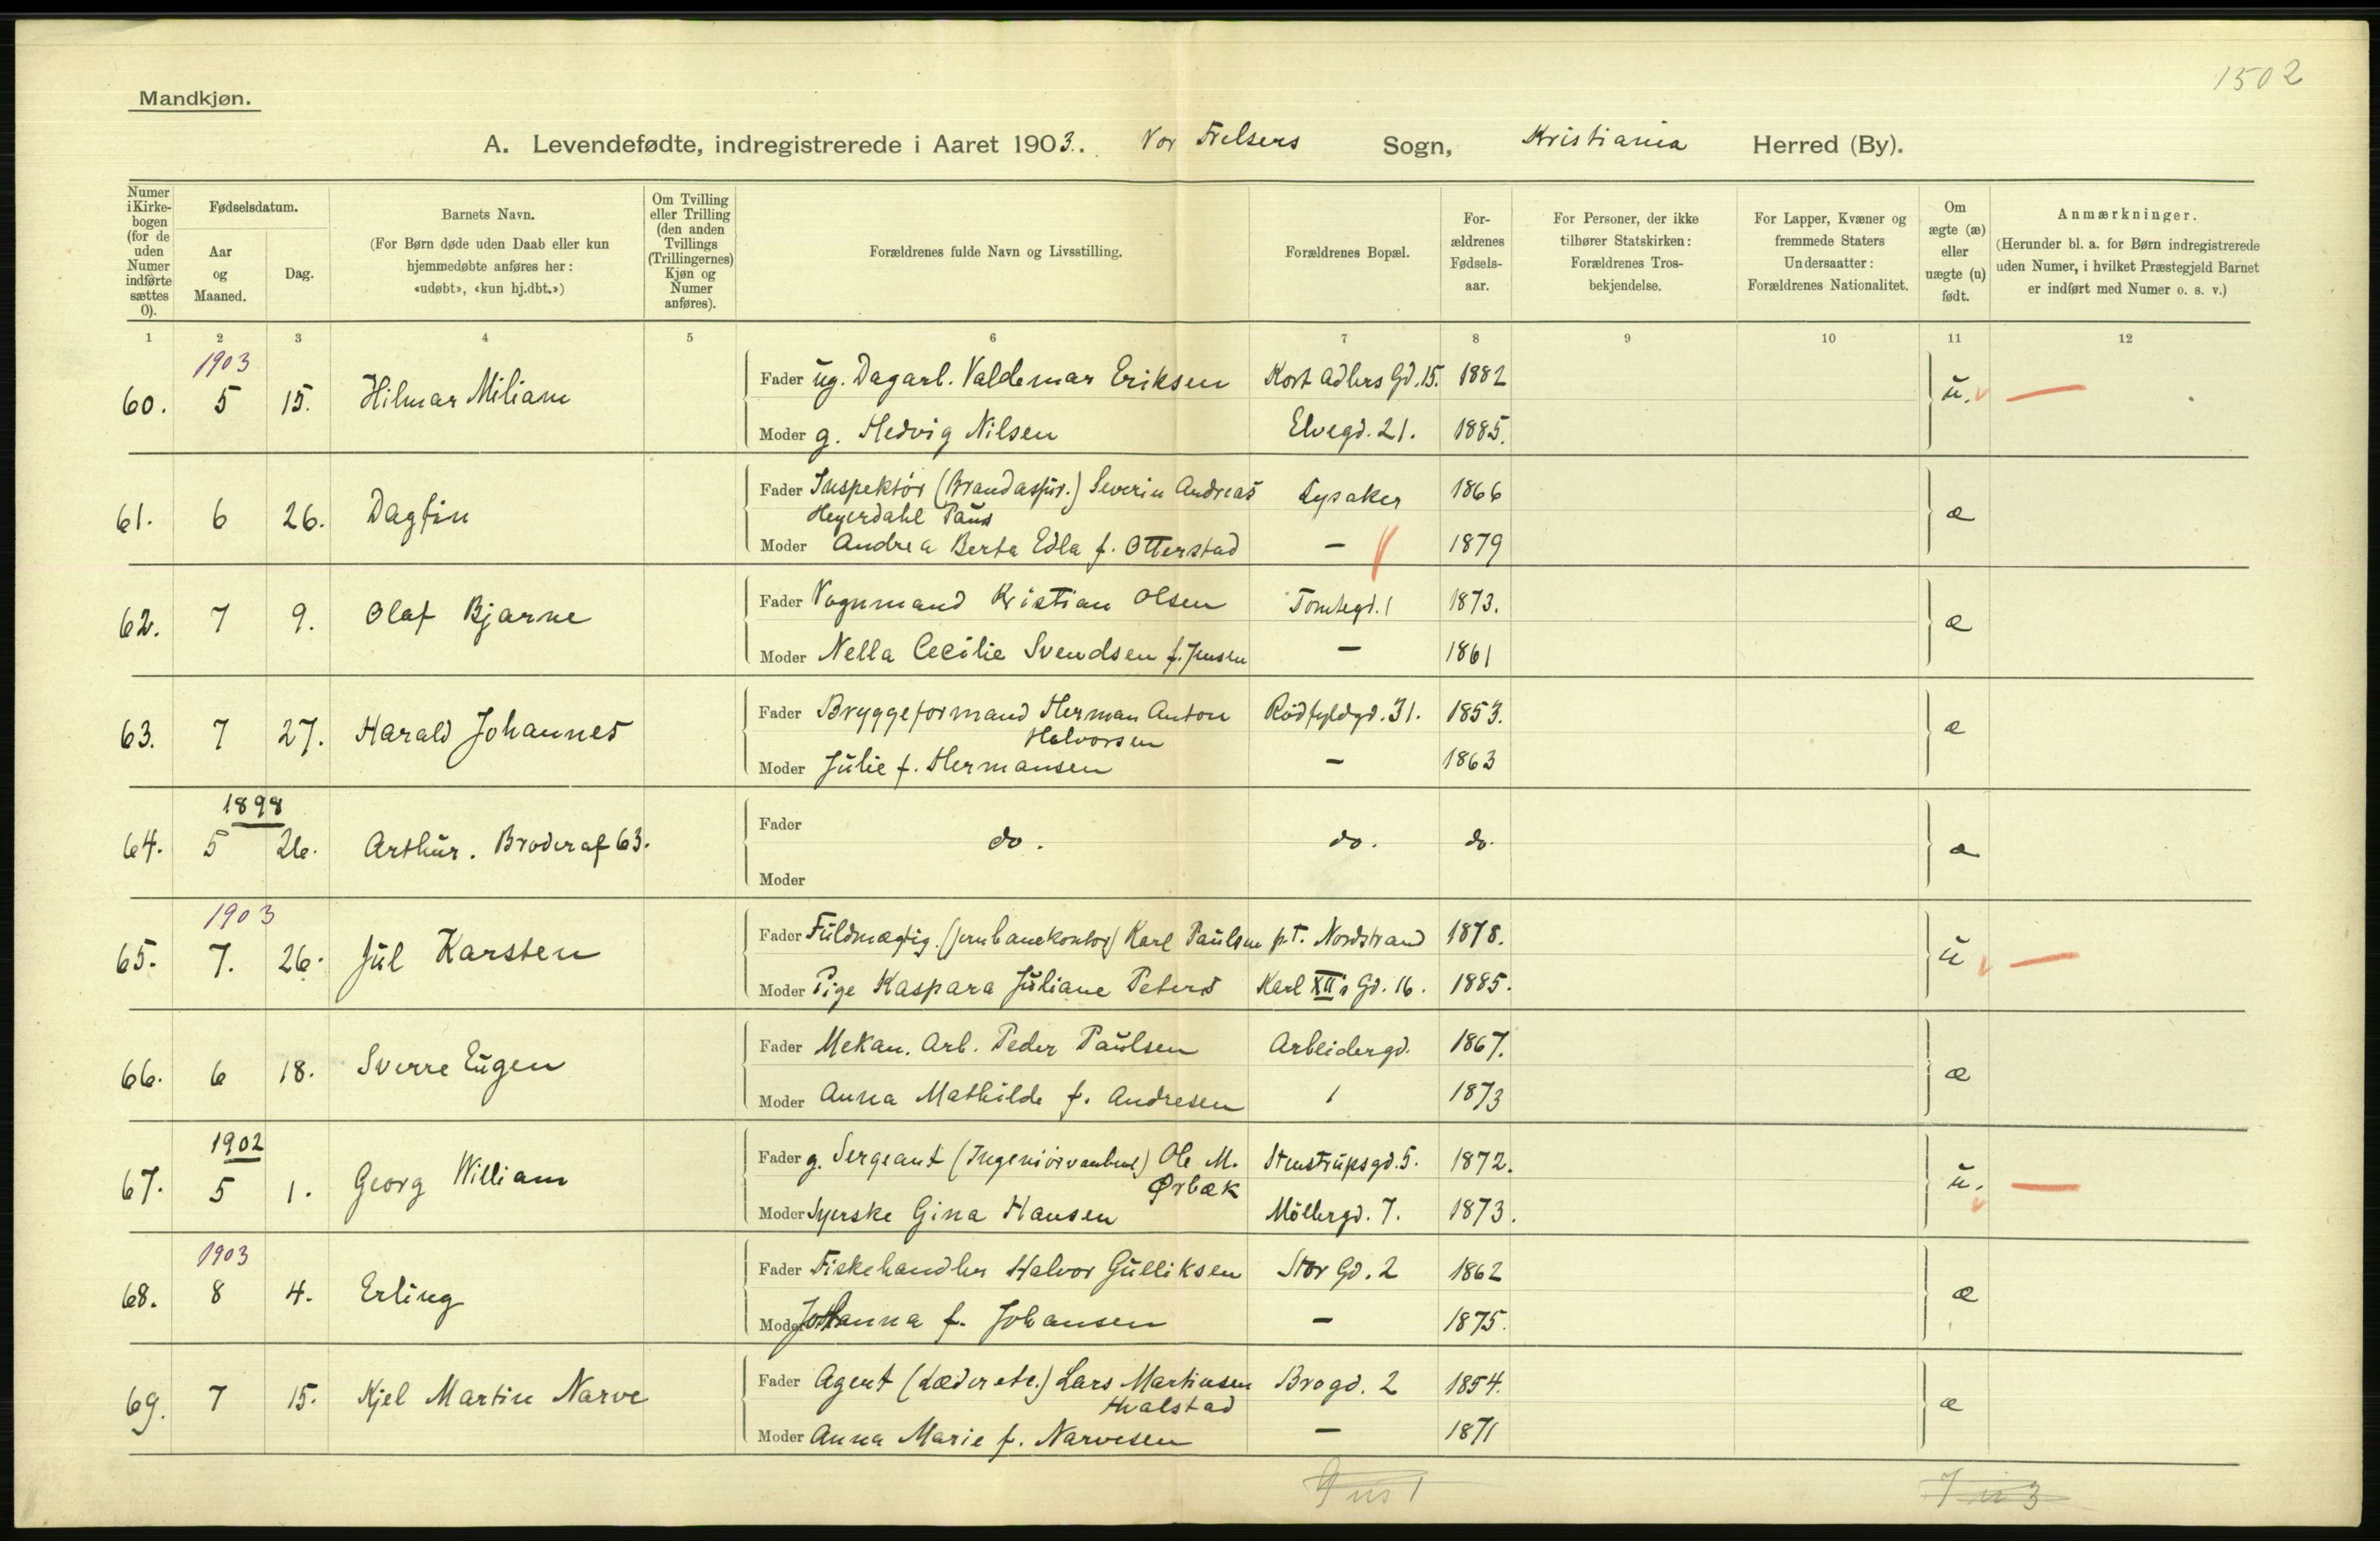 1502
Mandkjøn.
A. Levendefødte, indregistrerede i Aaret 1903. Vor Frelsers Sogn, Kristiania Herred (By).
Numer i Kirkebogen (for de uden Numer indførte sættes 0).
Fødselsdatum.
Aar og Maaned.
Dag.
Barnets Navn.
(For Børn døde uden Daab eller kun hjemmedøbte anføres her: «udøbt», «kun hj.dbt.»)
Om Tvilling eller Trilling (den anden Tvillings (Trillingernes) Kjøn og Numer anføres).
Forældrenes fulde Navn og Livsstilling.
Forældrenes Bopæl.
Forældrenes Fødselsaar.
For Personer, der ikke tilhører Statskirken: Forældrenes Trosbekjendelse.
For Lapper, Kvæner og fremmede Staters Undersaatter: Forældrenes Nationalitet.
Om ægte (æ) eller uægte (u) født.
Anmærkninger.
(Herunder bl. a. for Børn indregistrerede uden Numer, i hvilket Præstegjeld Barnet er indført med Numer o. s. v.)
1 2 3 4 5 6 7 8 9 10 11 12
1903
60. 5 15. Hilmar Miliam
Fader ug. Dagarb. Valdemar Eriksen Kort Adlers Gd. 15. 1882
u.
Moder g. Hedvig Nilsen Elvegd. 21. 1885.
61. 6 26. Dagfin
Fader Inspektør (Brandassur.) Severin Andreas Lysaker 1866
Heyerdahl Paus
æ
Moder Andrea Berta Edla f. Otterstad — 1879
62. 7 9. Olaf Bjarne
Fader Vognmand Kristian Olsen Tomtegd. 1 1873.
æ
Moder Nella Cecilie Svendsen f. Jensen — 1861
63. 7 27. Harald Johannes
Fader Bryggeformand Herman Anton Rødfyldgd. 31. 1853.
Halvorsen
æ
Moder Julie f. Hermansen — 1863
1898
64. 5 26. Arthur. Broder af 63.
Fader
do. do. do. æ
Moder
1903
65. 7. 26. Jul Karsten
Fader Fuldmægtig. (Jernbanekontor) Karl Paulsen p.t. Nordstrand 1878.
u
Moder Pige Kaspara Juliane Peters Karl XII's Gd. 16. 1885.
66. 6 18. Sverre Eugen
Fader Mekan. Arb. Peder Paulsen Arbeidergd. 1867.
æ
Moder Anna Mathilde f. Andresen 1 1873
1902
67. 5 1. Georg William
Fader g. Sergeant (Ingeniørvaabnet) Ole M. Stenstrupsgd. 5. 1872.
Ørbæk
u.
Moder Syerske Gina Hansen Møllergd. 7. 1873.
1903
68. 8 4. Erling
Fader Fiskehandler Halvor Gulliksen Stor Gd. 2 1862
æ
Moder Johanna f. Johansen — 1875.
69. 7 15. Kjel Martin Narve
Fader Agent (Læder etc.) Lars Martinsen Brogd. 2 1854.
Hvalstad
æ
Moder Anna Marie f. Narvesen — 1871